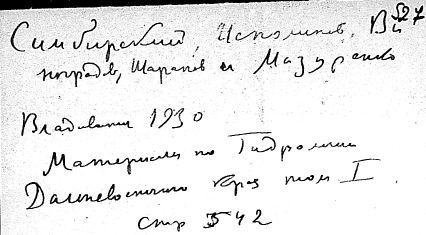 Симбирский, Исполинов, Ви
527
ноградов, Шарапов и Мазуренко
Владивосток 1930
Материалы по Гидрологии
Дальневосточного Края том I.
стр 542